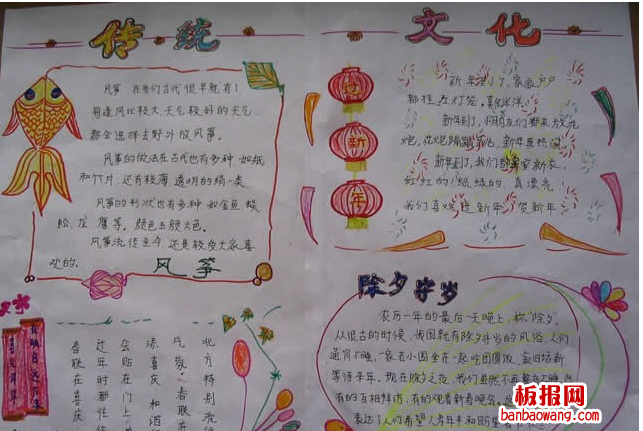 传统
文化
风筝,在我们古代很早就有了,
每逢风比较大,天气较好的天气
都会选择去野外放风筝。
风筝的做法在古代也有多种,如纸
和竹片,还有较薄,透明的绢一类。
风筝的形状也有多种,如金鱼、蜈
蚣、龙、鹰等。颜色五颜六色。
风筝流传至今,还是较受大家喜
欢的。
风筝
新年到了,家家户户
都挂在灯笼,喜气洋洋。
新年到了,们都来放花
炮,花炮,新年真热闹
新年到了,我们穿新衣,
红红的,绿绿的,真漂亮。
我们喜欢迎新年,贺新年
新
年
除夕守岁
农历一年的最后一天晚上,称"除夕。
从很古的时候,我国就有除夕守岁的风俗,人们
通宵不睡,一家老小围坐在一起吃团圆饭,辞旧结新
等待来年。现在除夕之夜,我们虽然不再
有的互相拜访,有的观看新春晚会。
表达了人们希望人寿年丰和盼望
北方特别流
凡是,春联
添喜庆,和谐
会贴在门上
过年时都
春联在喜庆
板报网
banbaowang.com